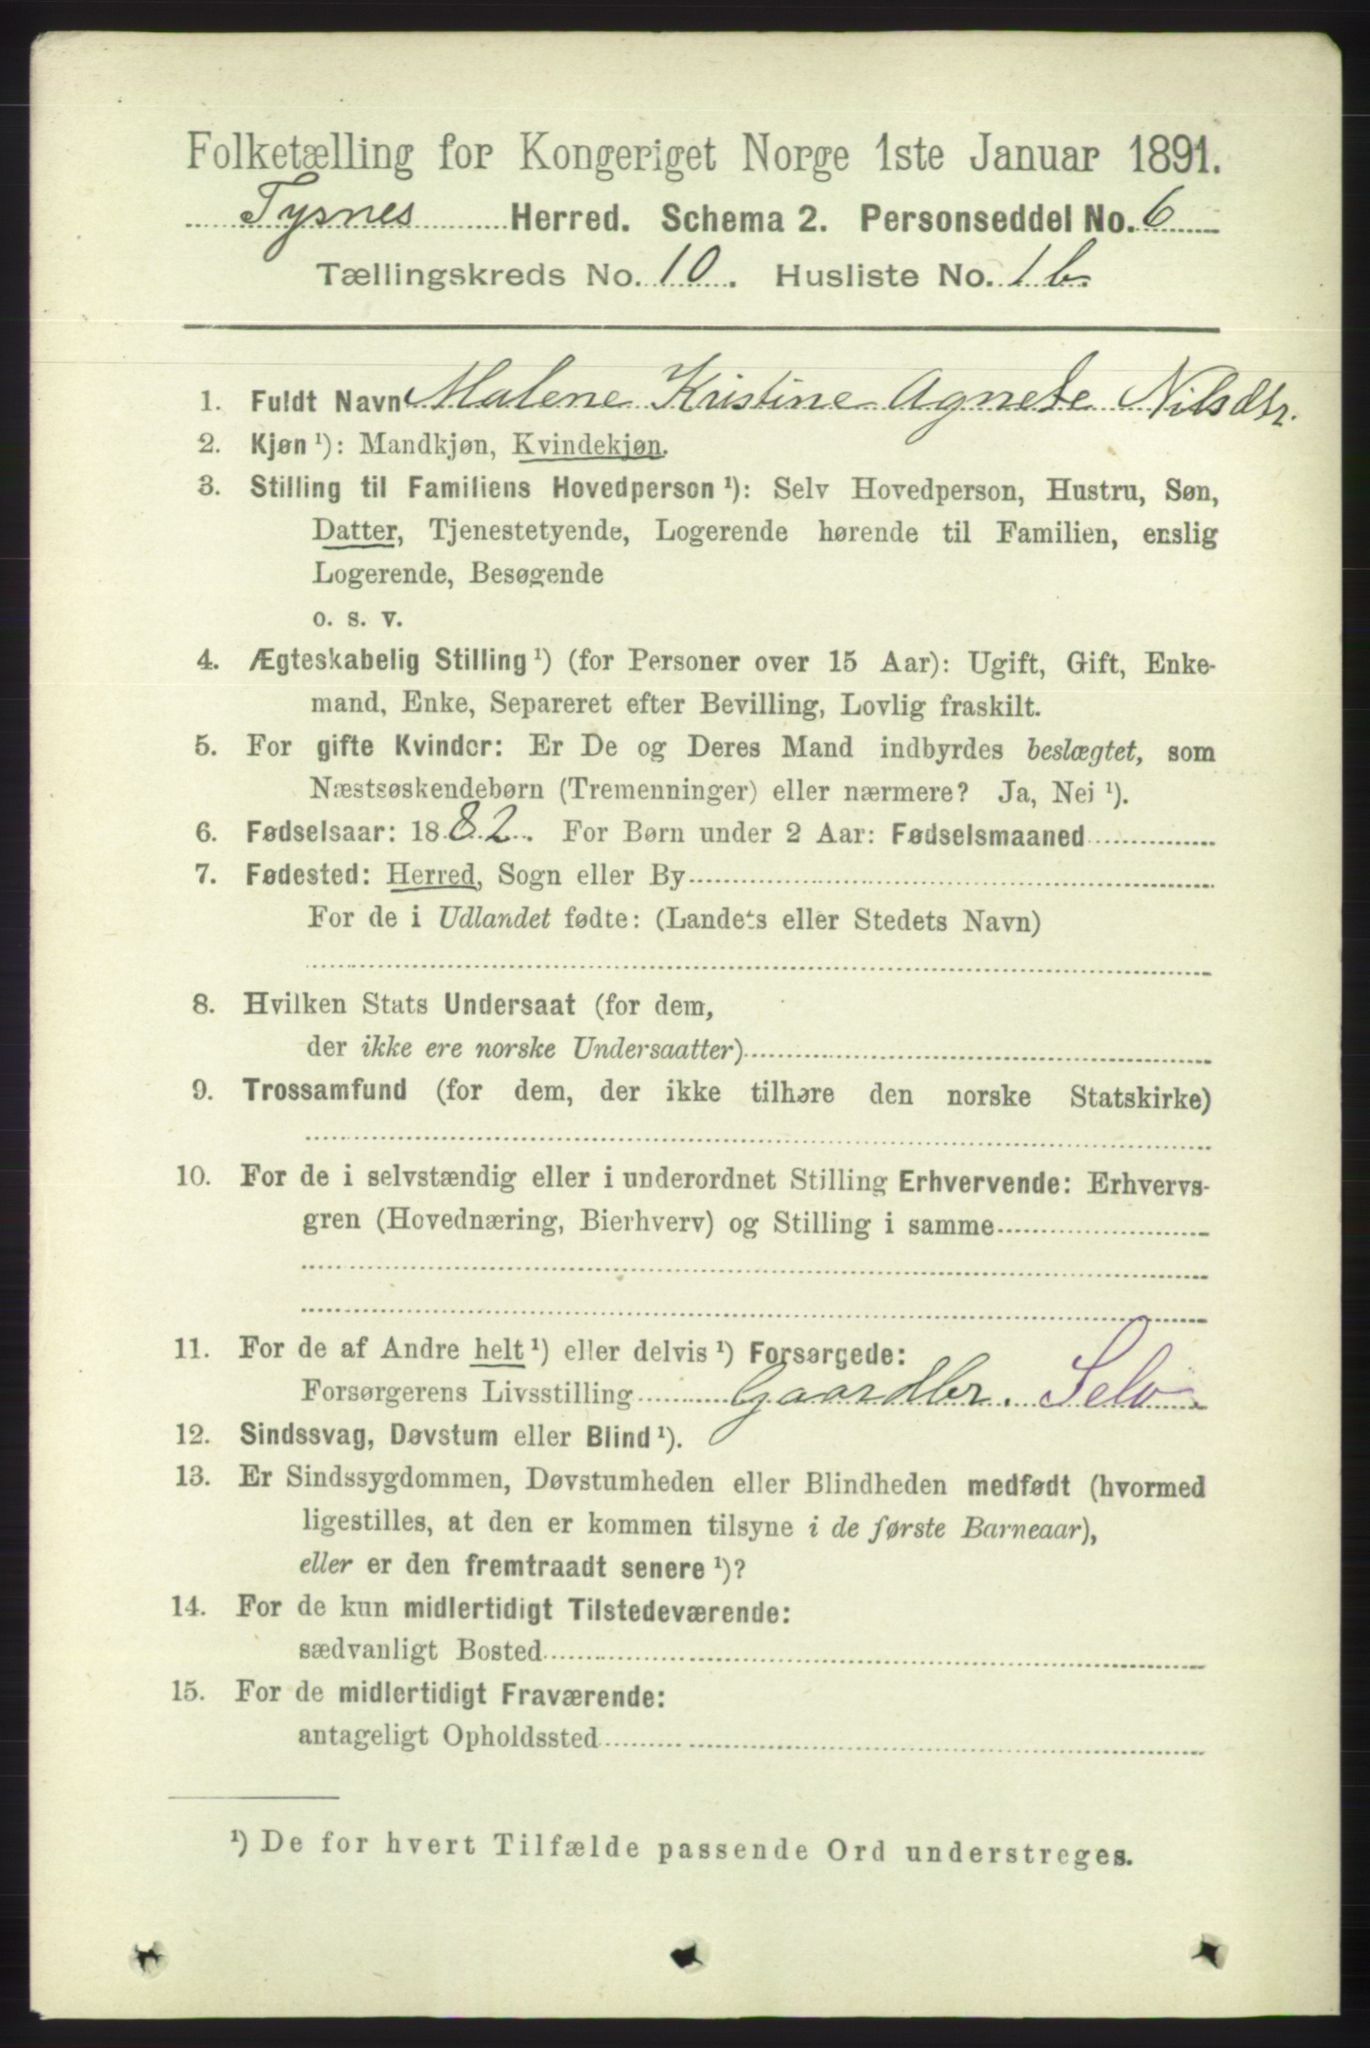 Folketælling for Kongeriget Norge 1ste Januar 1891.
Tysnes Herred. Schema 2. Personseddel No. 6
Tællingskreds No. 10. Husliste No. 1 b.
1. Fuldt Navn Malene Kristine Agnete Nilsdtr.
2. Kjøn ¹): Mandkjøn, Kvindekjøn.
3. Stilling til Familiens Hovedperson ¹): Selv Hovedperson, Hustru, Søn,
Datter, Tjenestetyende, Logerende hørende til Familien, enslig
Logerende, Besøgende
o. s. v.
4. Ægteskabelig Stilling ¹) (for Personer over 15 Aar): Ugift, Gift, Enke-
mand, Enke, Separeret efter Bevilling, Lovlig fraskilt.
5. For gifte Kvinder: Er De og Deres Mand indbyrdes beslægtet, som
Næstsøskendebørn (Tremenninger) eller nærmere? Ja, Nei ¹).
6. Fødselsaar: 1882. For Børn under 2 Aar: Fødselsmaaned
7. Fødested: Herred, Sogn eller By
For de i Udlandet fødte: (Landets eller Stedets Navn)
8. Hvilken Stats Undersaat (for dem,
der ikke ere norske Undersaatter)
9. Trossamfund (for dem, der ikke tilhøre den norske Statskirke)
10. For de i selvstændig eller i underordnet Stilling Erhvervende: Erhvervs-
gren (Hovednæring, Bierhverv) og Stilling i samme
11. For de af Andre helt ¹) eller delvis ¹) Forsørgede:
Forsørgerens Livsstilling Gaardbr. Selv
12. Sindssvag, Døvstum eller Blind ¹).
13. Er Sindssygdommen, Døvstumheden eller Blindheden medfødt (hvormed
ligestilles, at den er kommen tilsyne i de første Barneaar),
eller er den fremtraadt senere ¹)?
14. For de kun midlertidigt Tilstedeværende:
sædvanligt Bosted
15. For de midlertidigt Fraværende:
antageligt Opholdssted
¹) De for hvert Tilfælde passende Ord understreges.